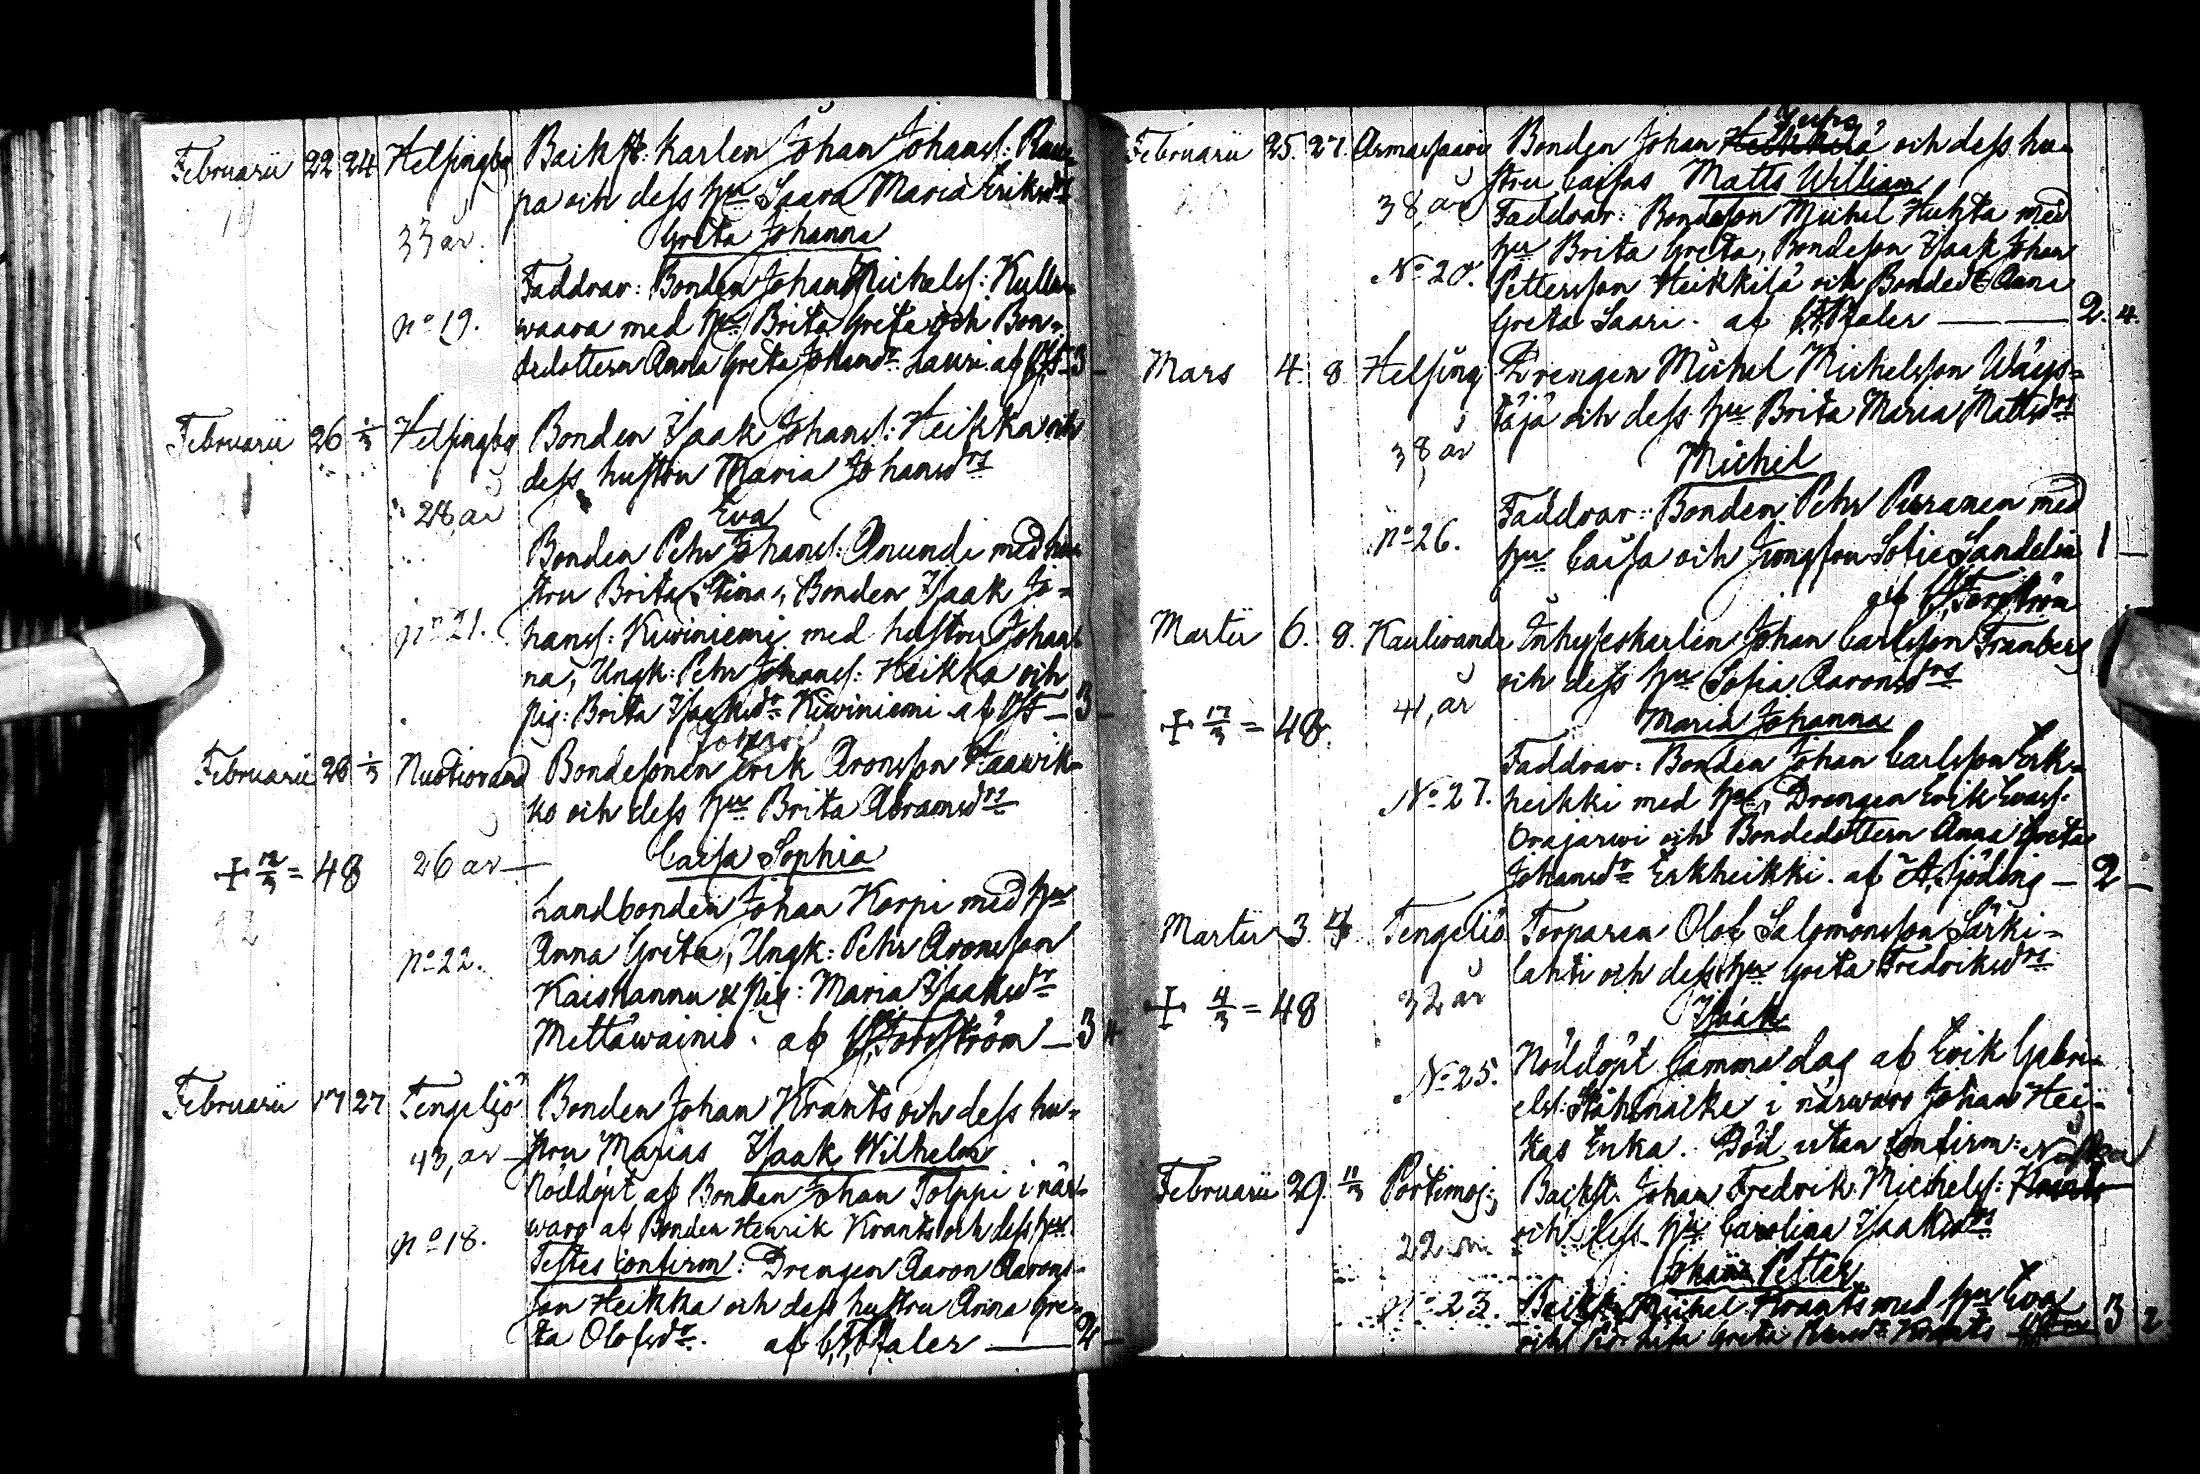 Februarii 22 24 Helsingby Backst: Karlen Johan Johanss: Rau-
pa och dess hu Saara Maria Eriksdr
33 år. Greta Johanna
Faddrar: Bonden Johan Michelss: Kulla-
no 19. waara med hu Brita Greta och Bon-
dedottern Anna Greta Johansdr Lauri. af 3
Februarii 26 1/3 Helsingby Bonden Isaak Johanss: Heikka och
dess hustru Maria Johansdrs
28, år Eva
Bonden Pehr Johanss: Anundi med hu-
stru Brita Stina, Bonden Isaak Jo-
no 21. hanss: Kiwiniemi med hustru Johan-
na, Ungk: Pehr Johanss: Heikka och
pig: Brita Isaksdr Kiwiniemi af 3
Februarii 26 1/3 Nuotiorand Bondesonen Erik Aronsson Haawik-
ko och dess hu Brita Abramsdrs
+ 12/3 = 48 26 år Caisa Sophia
Landbonden Johan Korpi med hu
no 22. Anna Greta, Ungk: Pehr Aronsson
Kaishannu & pig: Maria Isaaksdr
Mettäwainio. af Forsström 3 4
Februarii 17 27 Tengeljö Bonden Johan Krants och dess hu-
43, år stru Marias Isaak Wilhelm
Nöddöpt af Bonden Johan Tolppi i när-
no 18. waro af Bonden Henrik Krants och dess hu
Testes confirm: Drengen Aaron Aarons-
son Heikka och dess hustru Anna Gre-
ta Olofsdr. af Ataler 2
Februarii 25. 27. Armassaari Bonden Johan Heikkilä och dess hu-
38, år stru Caisas Matts William
Faddrar: Bondeson Michel Huhta med
hu Brita Greta, Bondeson Isaak Johan
No 20. Pettersson Heikkilä och Bondedr Anna
Greta Saari. af 2. 4.
Mars 4. 8. Helsing Drengen Michel Michelsson Wäys-
täjä och dess hu Brita Maria Mattsdrs
38, år Michel
Faddrar: Bonden Pehr Pirranen med
no 26. hu Caisa och Jungfru Sofie Sandelin 1
af Forsström
Martii 6. 8. Kauliranda Inhyseskarlen Johan Carlsson Franberg
och dess hu Sofia Aaronsdrs
+ 17/3 = 48. 41, år Maria Johanna
Faddrar: Bonden Johan Carlsson Erk-
No 27. heikki med hu, Drengen Erik Evass:
Orajarwi och Bondedottern Anna Greta
Johansdr Erkheikki. af A. Sjöding 2
Martii 3. Tengeliö Torparen Olof Salomonsson Särki-
lahti och dess hu Greta Fredriksdrs
+ 4/3 = 48 32 år Isaak
Nöddöpt samma dag af Erik Gabri-
No 25. elss: i närwaro Johan Hei-
kas Enka. Död utan confirm:
Februarii 29. 11/3 Portimoj: Backst. Johan Fredrik Michelss:
och dess hu Carolina Isaaksdrs
22 Johan Petter
no 23. Backst: Michel Krants med hu Eva
och pig: Greta Krants 3 2